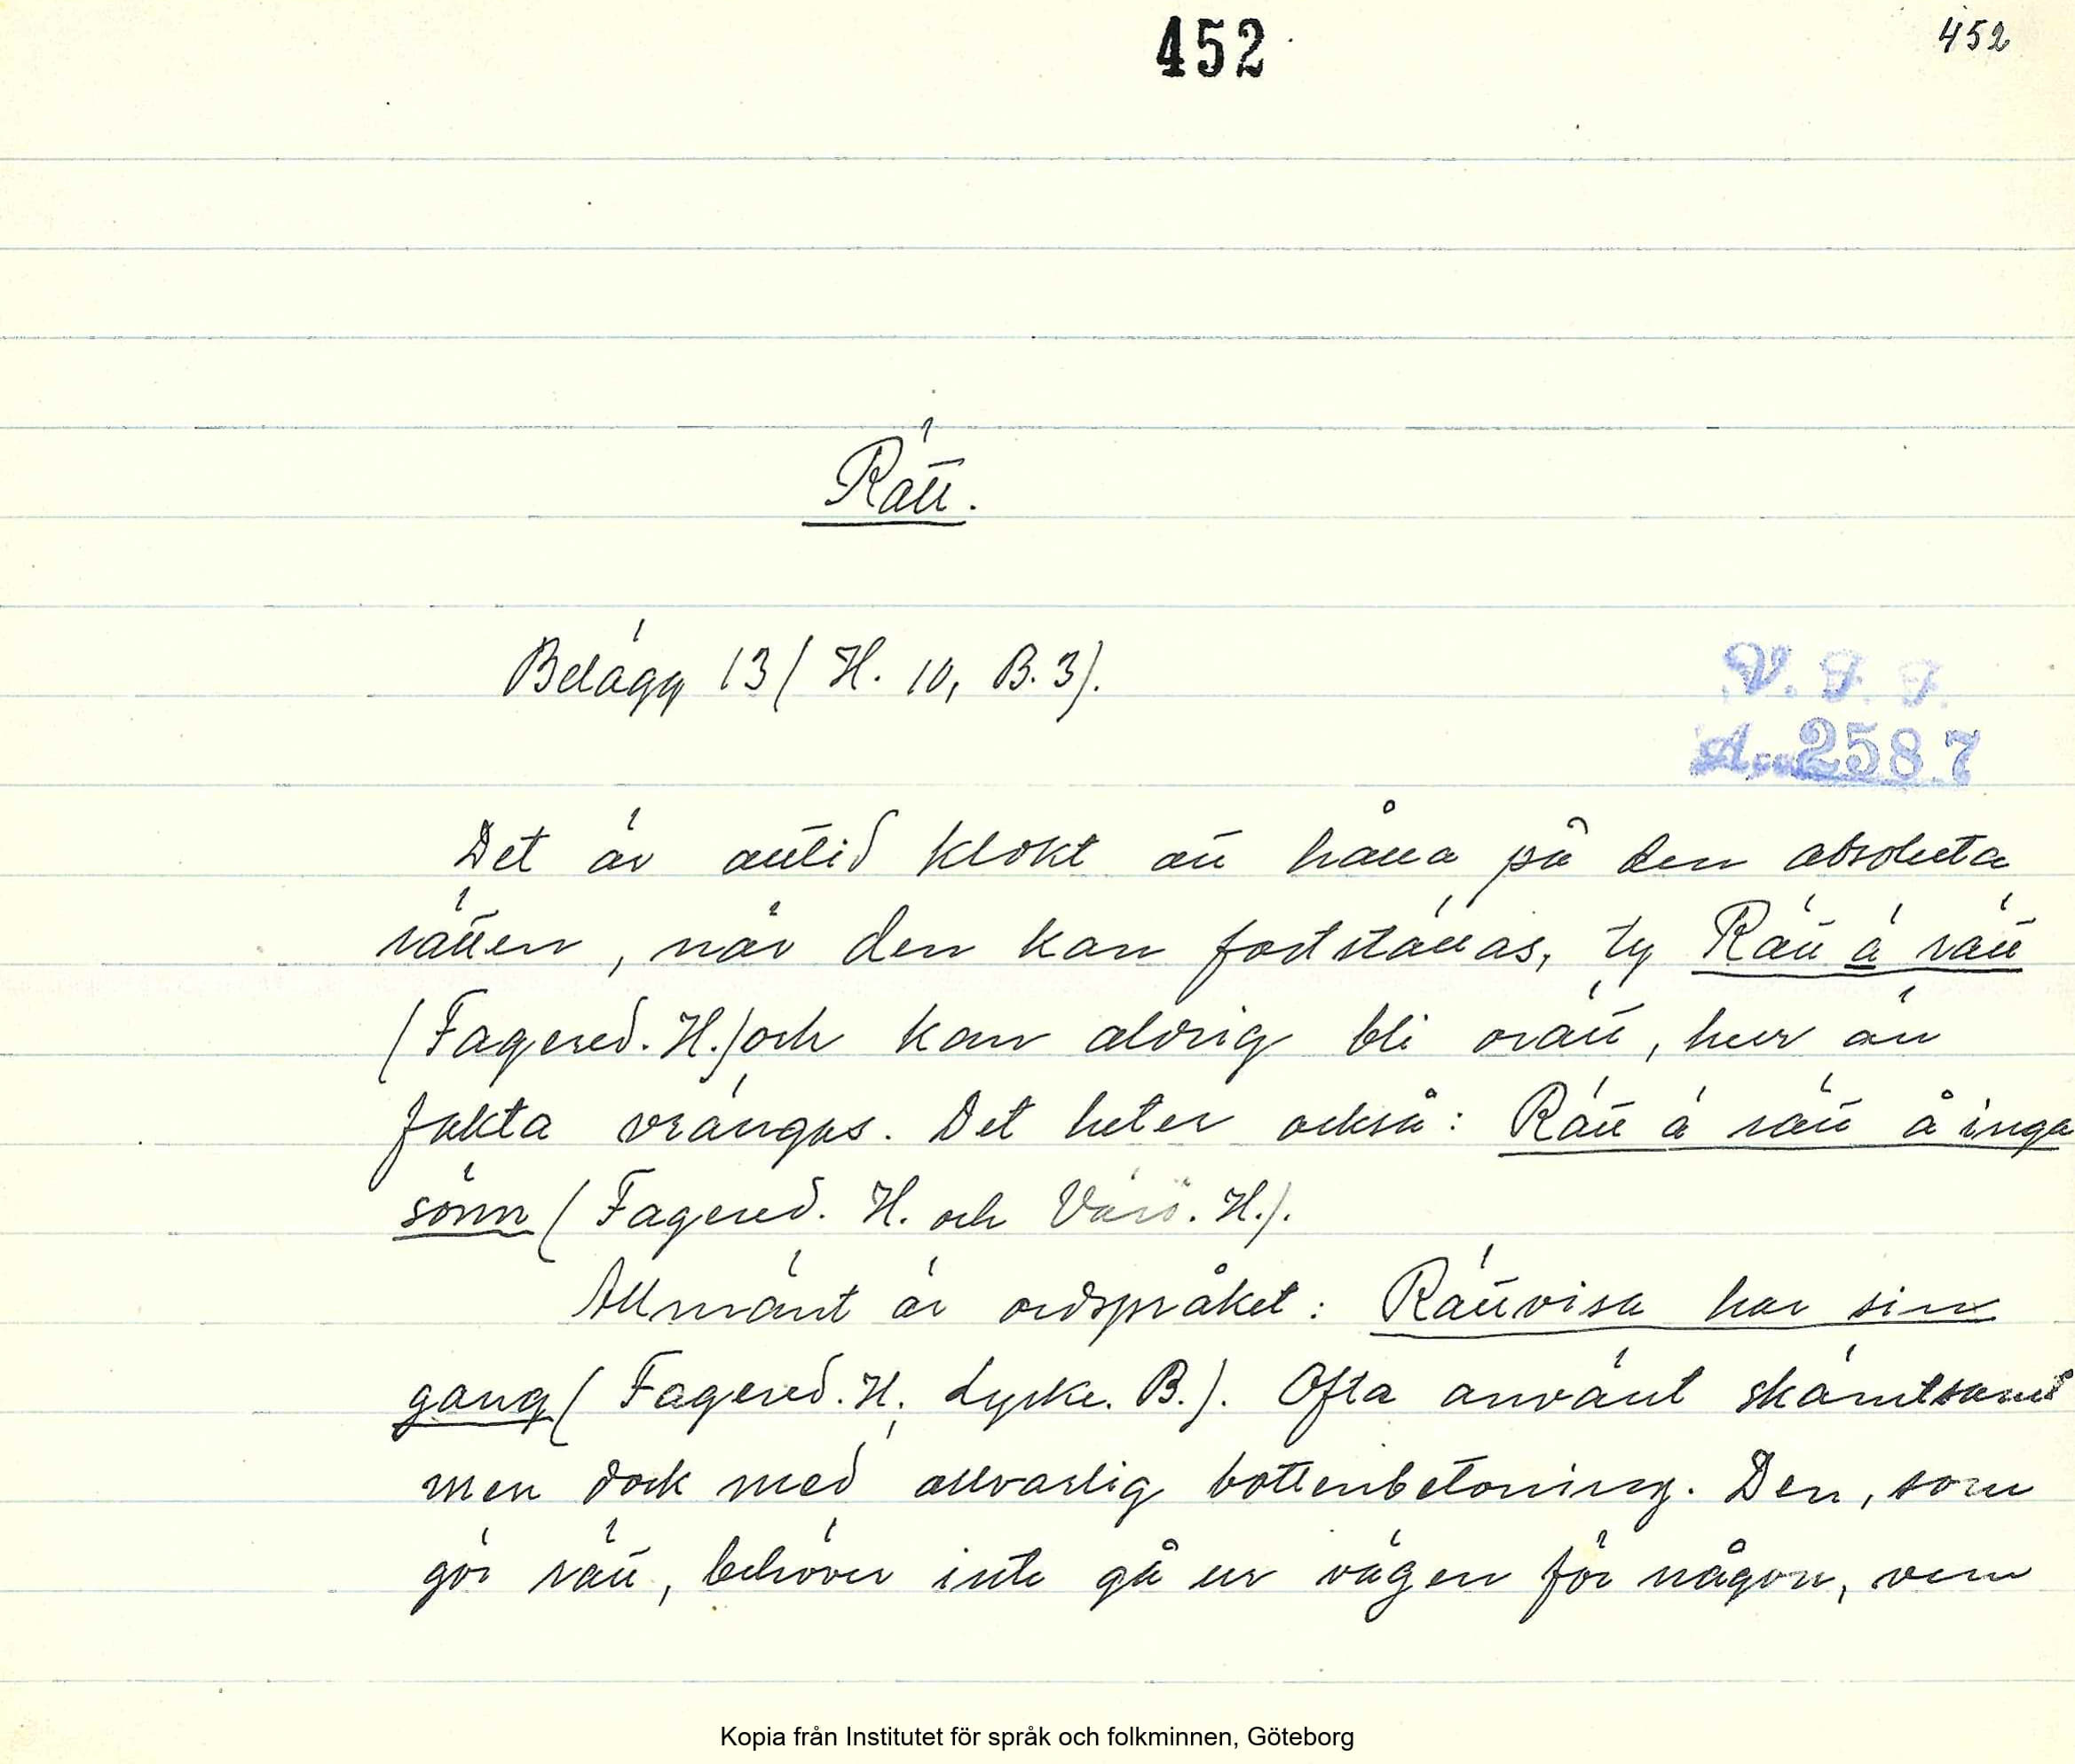 452
452
Rätt.
Belägg 13 (H. 10, B. 3).
V. F. F.
Acc 2587
Det är alltid klokt att hålla på den absoluta
rätten, når den kan fastställas, ty Rätt ä rätt
(Fagered. H.) och kan aldrig bli orätt, hur än
fakta vrängas. Det heter också: Rätt ä rätt å inga
sönn (Fagered. H. och Värö. H.).
Allmänt är ordspråket: Rättvisa har sin
gang (Fagered. H; Lyske. B.). Ofta använt skämtsamt
men dock med allvarlig bottenbetoning. Den, som
gör rätt, behöver inte gå ur vägen för någon, vem
Kopia från Institutet för språk och folkminnen, Göteborg